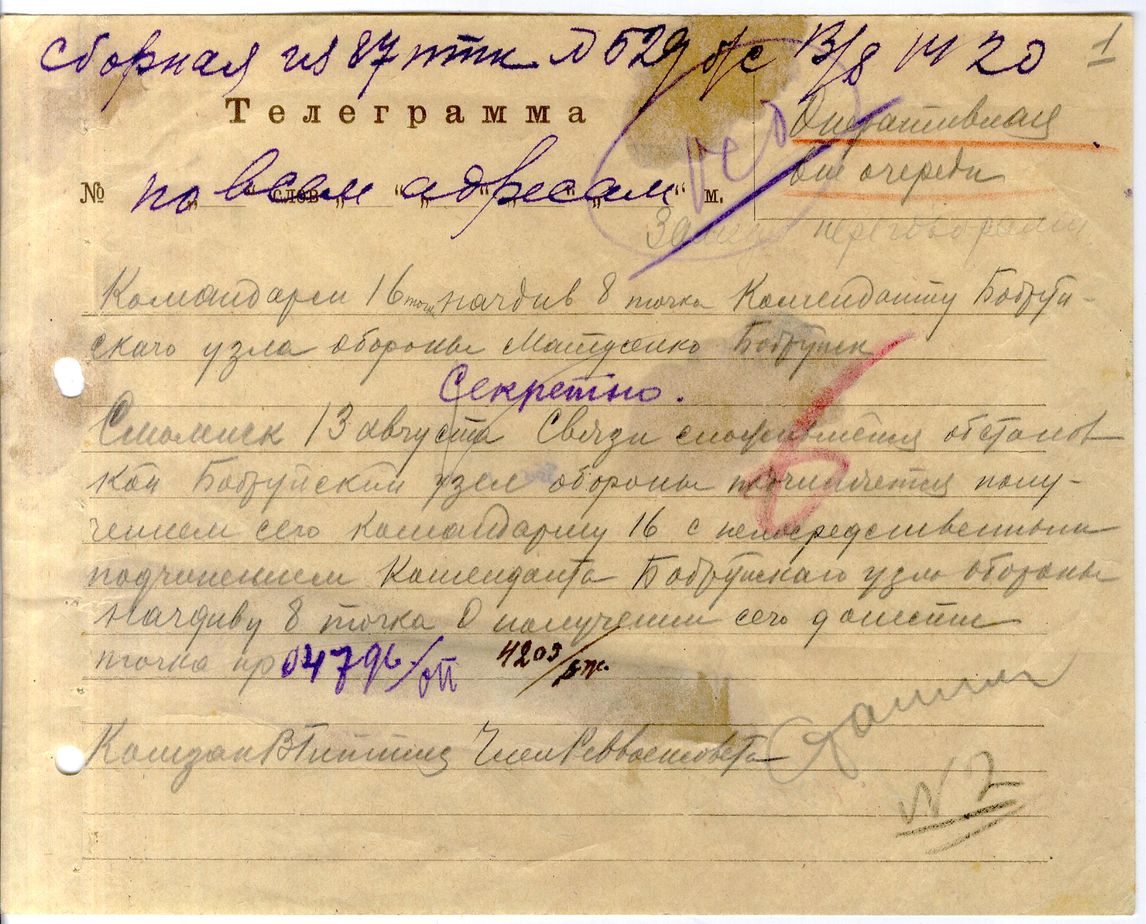 Сборная из 87 птк № 529 о/с 13/8 14 20
1
Телеграмма
Оперативная
вне очереди
№ по всем адресам м.
переговорами
Командарм 16 точка Начдив 8 точка Коменданту Бобруй-
скаго узла обороны Матусенко Бобруйск
Секретно.
Смоленск 13 августа Связи сложившейся обстанов
кой Бобруйский узел обороны подчиняется полу-
чением сего Командарму 16 с непосредственным
подчинением Коменданта Бобруйскаго узла обороны
Начдиву 8 точка О получении сего донести
точка нр 04796/оп 4203/
Комзап Член Реввоенсовета
№ 2